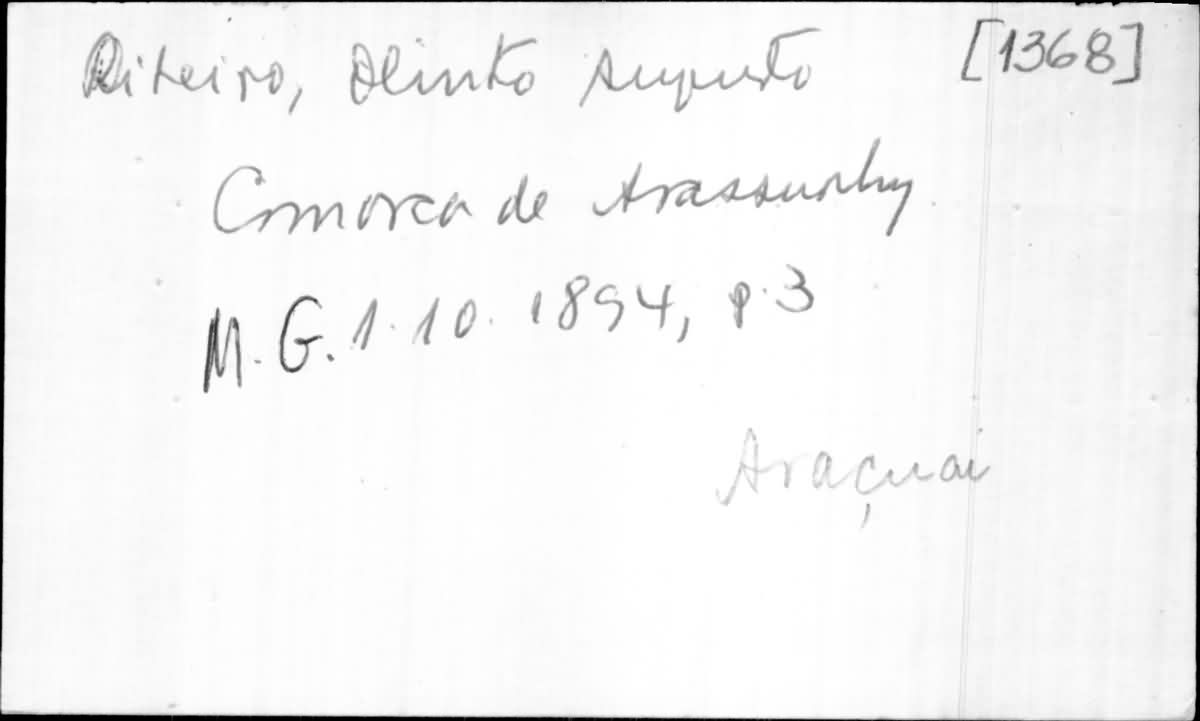 Ribeiro, Olinto Augusto [1368]
Comarca de Arassuahy
M. G. 1. 10. 1894, p. 3
Araçuai